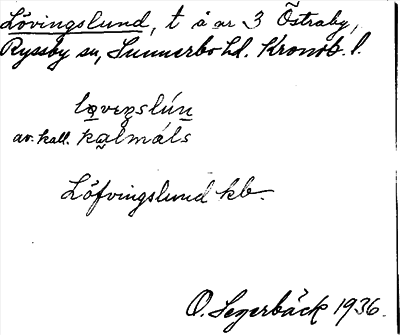 Lövingslund, t å ar 3 Östraby,
Ryssby sn, Sunnerbo hd. Kronob. l.
lǫveŋslún
av. kall. kalmáls
Löfvingslund kb.
O. Segerbäck 1936.